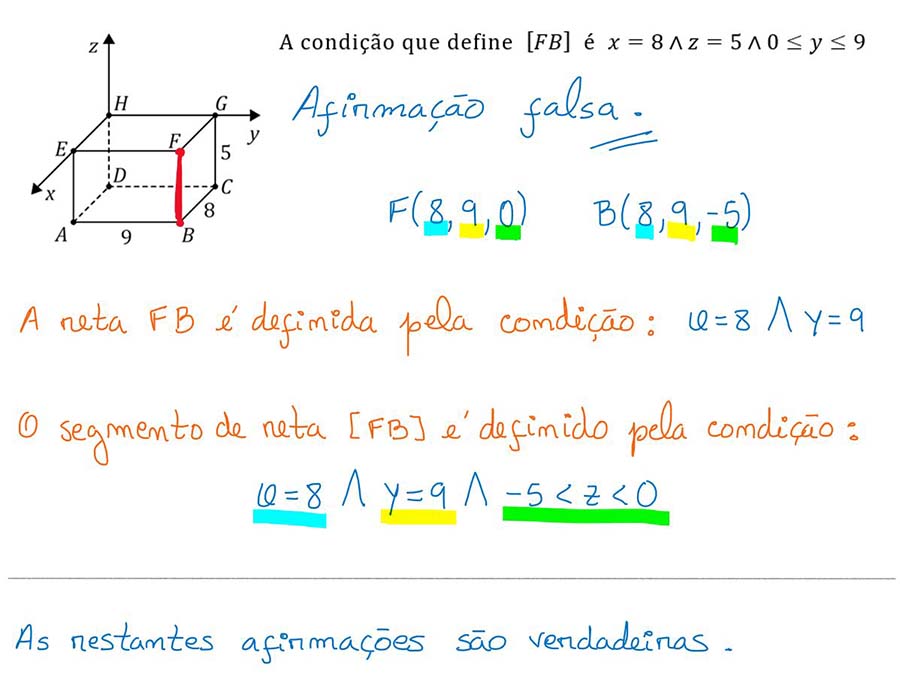 A condição que define [FB] é x = 8 ∧ z = 5 ∧ 0 ≤ y ≤ 9
z
H
G
y
E
F
5
x
D
C
8
A
9
B
Afirmação falsa.
F(8, 9, 0) B(8, 9, -5)
A reta FB é definida pela condição: x=8 ∧ y=9
O segmento de reta [FB] é definido pela condição:
x=8 ∧ y=9 ∧ -5 < z < 0
As restantes afirmações são verdadeiras.